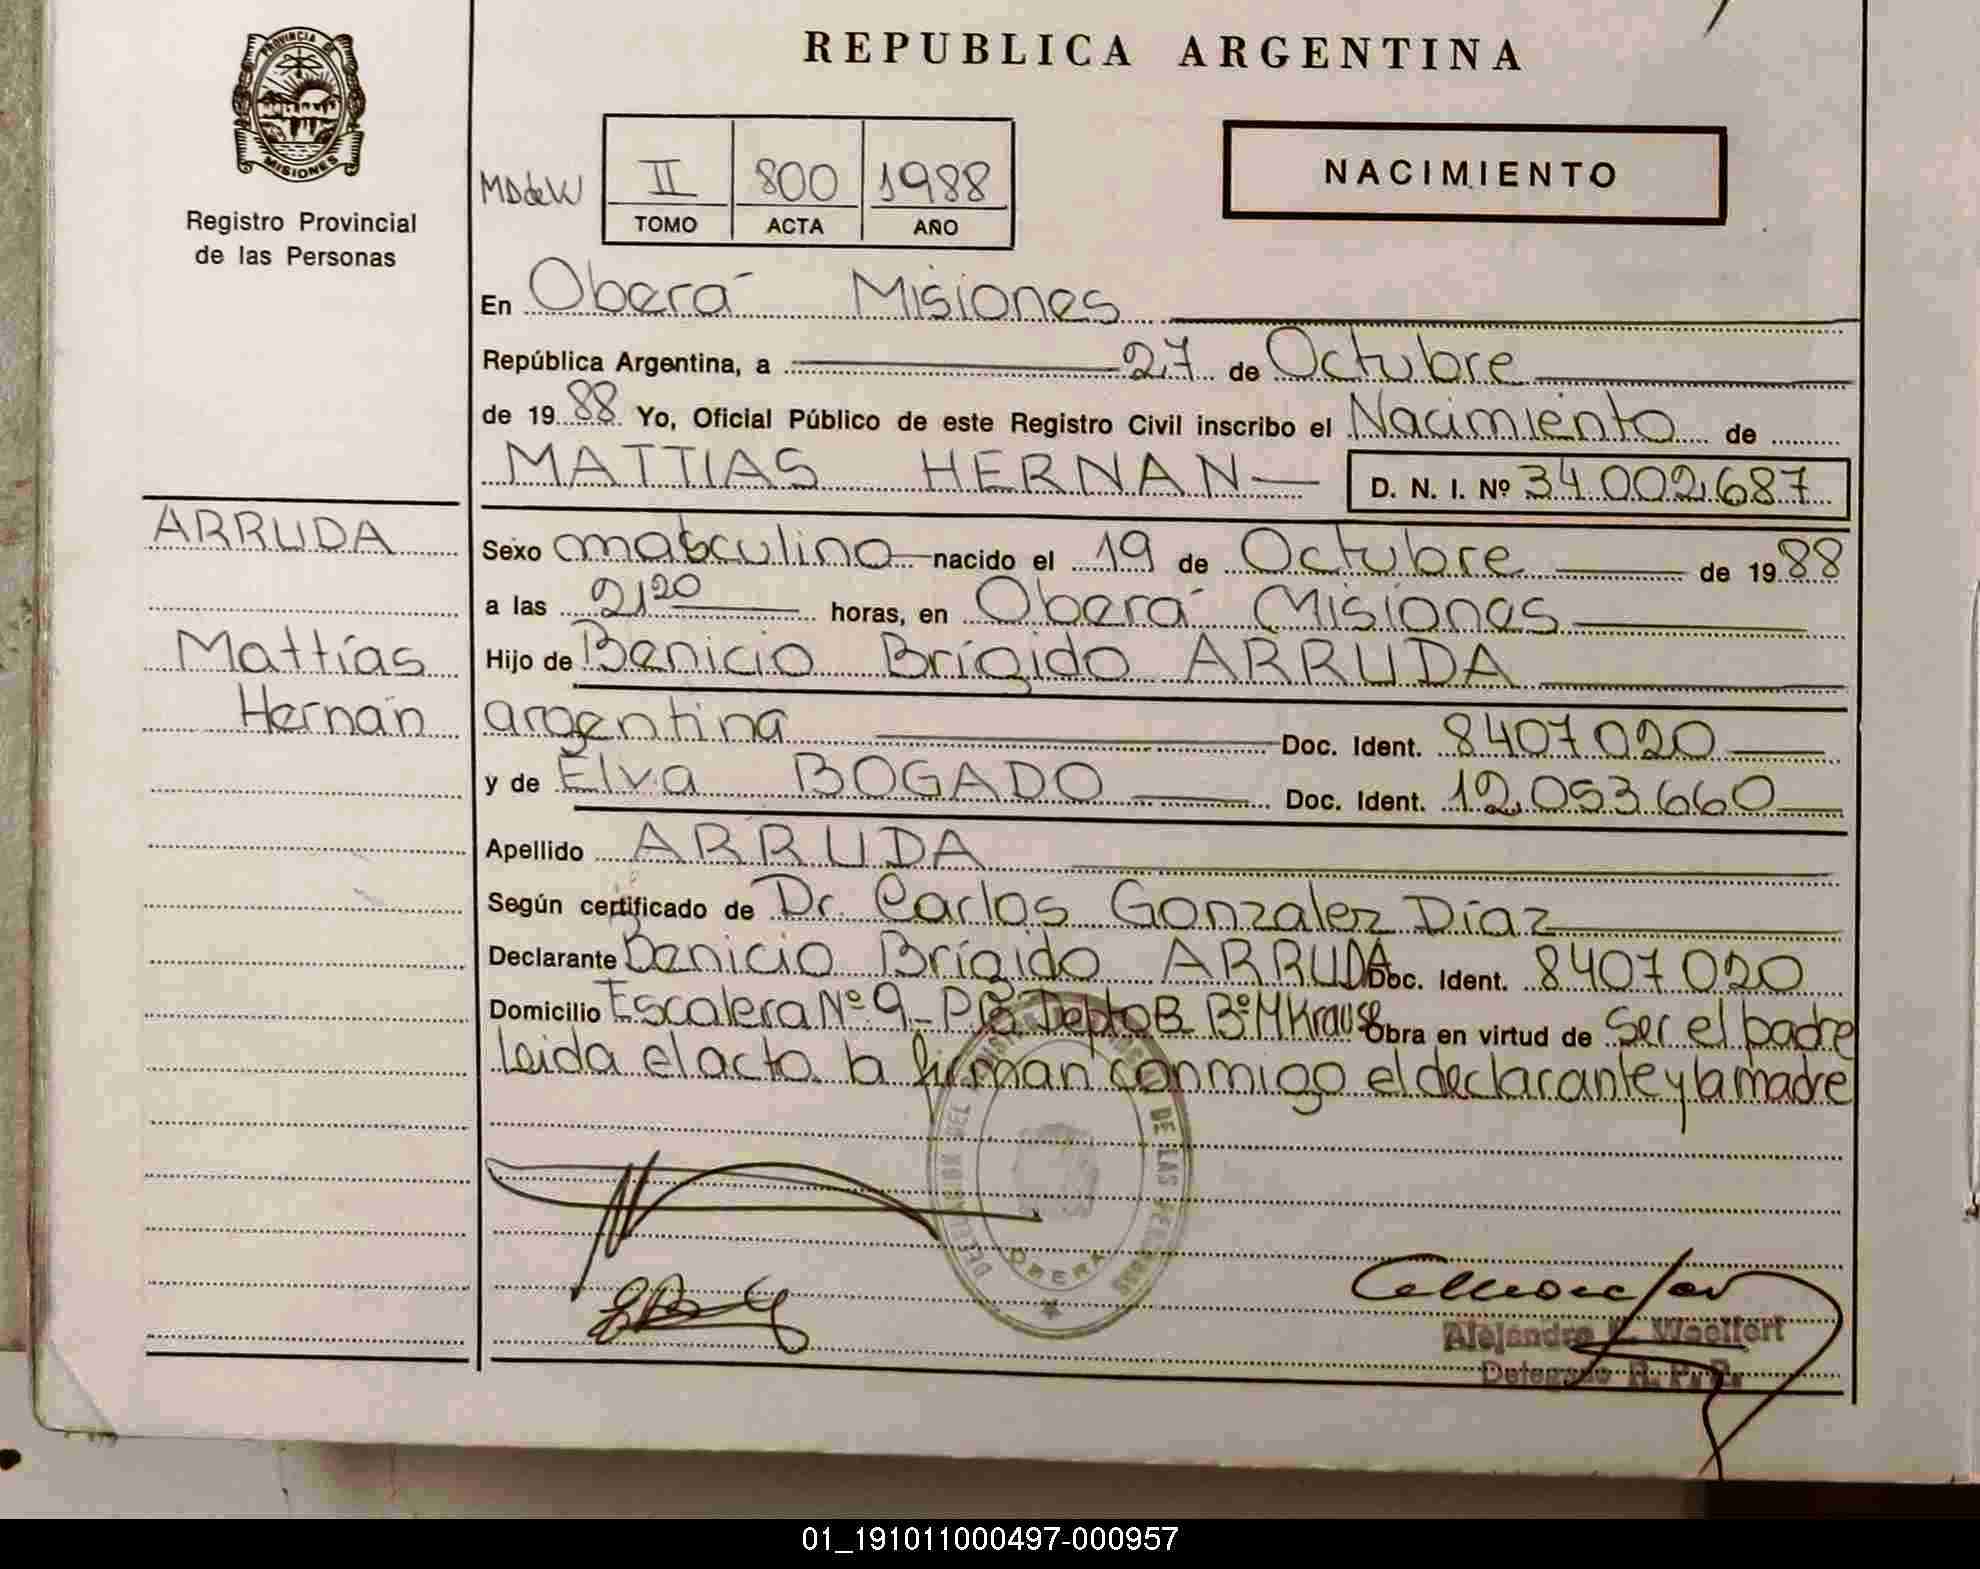 PROVINCIA DE
MISIONES
Registro Provincial
de las Personas
REPUBLICA ARGENTINA
MDdeW
II 800 1988
TOMO ACTA AÑO
NACIMIENTO
En Oberá Misiones
República Argentina, a 27 de Octubre
de 1988 Yo, Oficial Público de este Registro Civil inscribo el Nacimiento de
MATTIAS HERNAN D. N. I. Nº 34.002.687
ARRUDA
Mattías
Hernán
Sexo masculino nacido el 19 de Octubre de 1988
a las 21 20 horas, en Oberá Misiones
Hijo de Benicio Brígido ARRUDA
argentina Doc. Ident. 8407020
y de Elva BOGADO Doc. Ident. 12.053.660
Apellido ARRUDA
Según certificado de Dr. Carlos Gonzalez Díaz
Declarante Benicio Brígido ARRUDA Doc. Ident. 8407020
Domicilio Escalera Nº 9_ Depto B Bº M Krause Obra en virtud de Ser el padre
Leida el acta la firman conmigo el declarante y la madre
DE LAS PERSONAS
OBERA
Alejandra Woelfert
Delegado R. P. P.
01_191011000497-000957